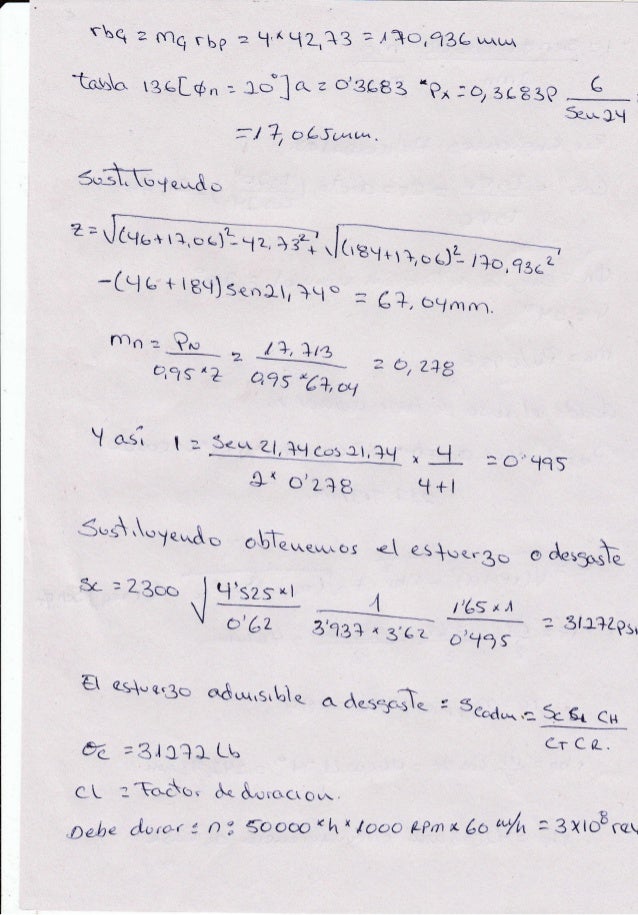 rbG = mG rbp = 4*42,73 = 170,936 mm
tabla 136[ϕn = 20°] a = 0'3683 *Px = 0,3683P 6/Sen24
=17,065mm.
Sustituyendo
z = √((46+17,06)²-42,73²) + √((184+17,06)²-170,936²)
-(46+184)sen21,74° = 67,04mm.
mn = PN/(0,95*Z) = 17,713/(0,95*67,04) = 0,278
Y así I = (Sen 21,74 cos 21,74)/(2* 0'278) x 4/(4+1) = 0'495
Sustituyendo obtenemos el esfuerzo o desgaste
Sc = 2300 √((4'525x1)/0'62 1/(3'937*3'62) (1'65x1)/0'495) = 31272psi
El esfuerzo admisible a desgaste = Scadm. = (Sc CL CH)/(CT CR.
σc = 31272 Lb
CL = Factor de duracion.
Debe durar: n: 50000 *h* 1000 RPm x 60 m/h = 3x10⁸ rev